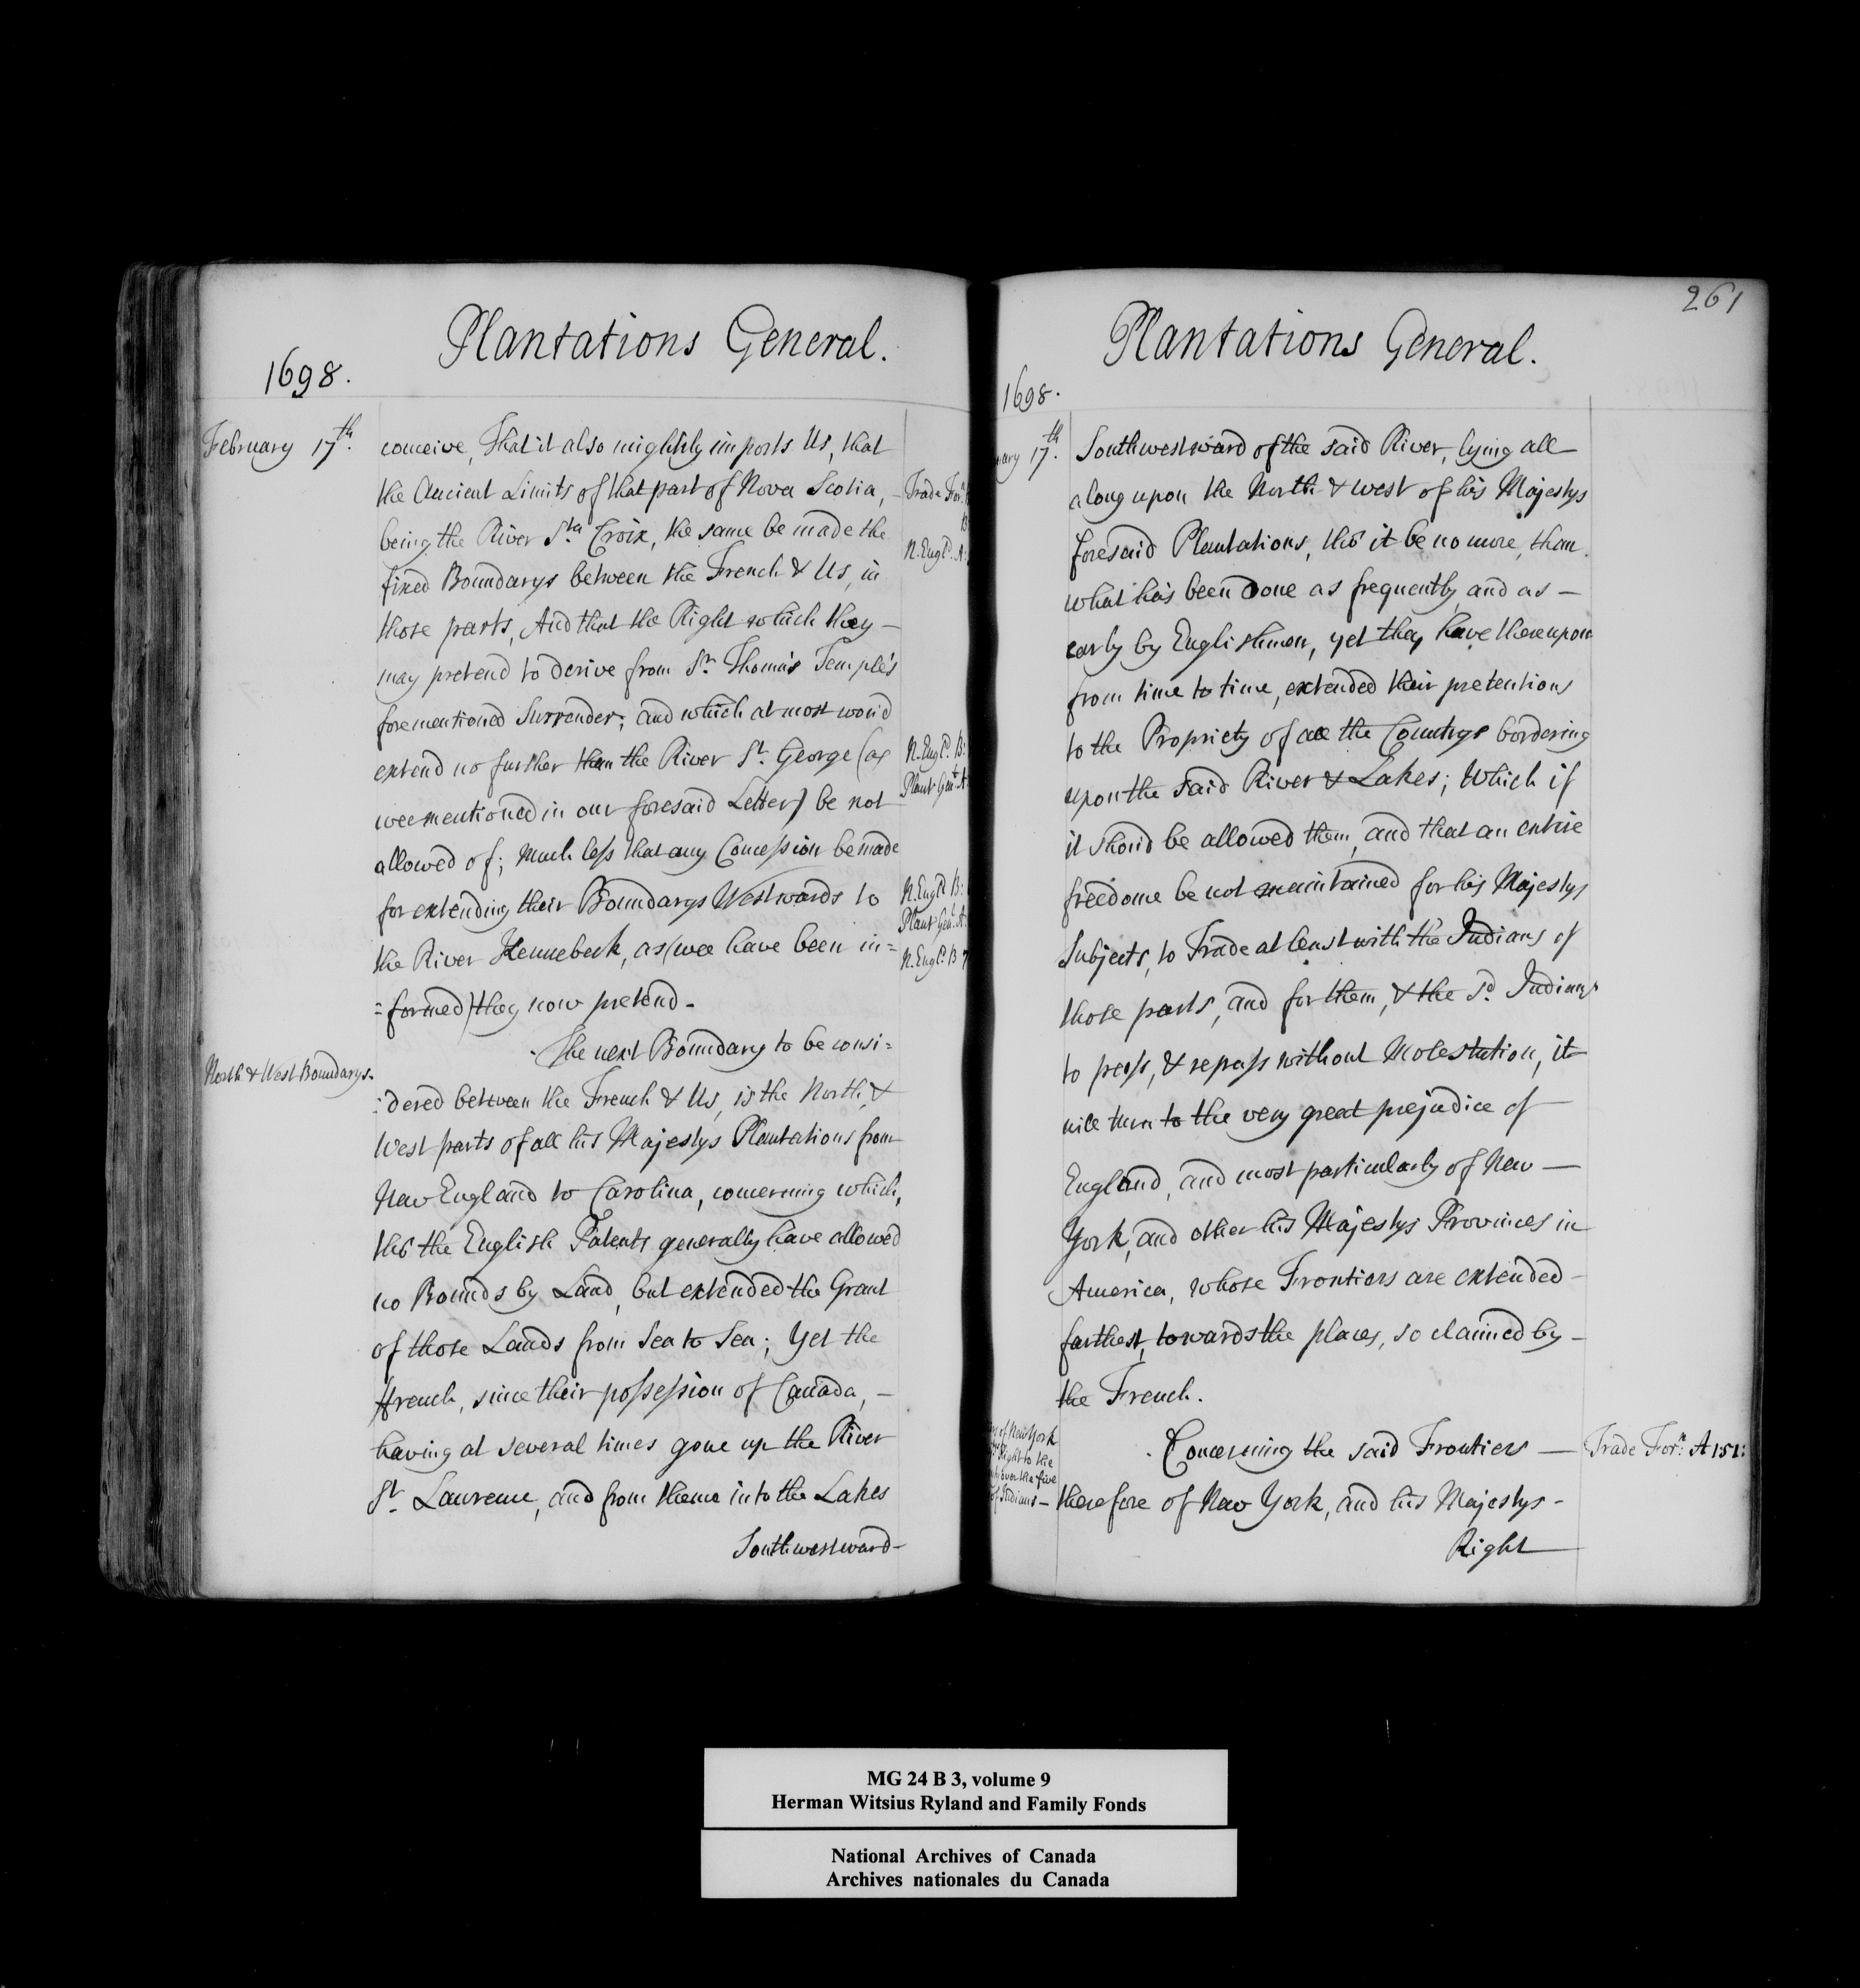 Plantations General.
1698.
February 17th.
conceive, That it also mightily imports Us, that
the Ancient Limits of that part of Nova Scotia, –
being the River Sta Croix, the same be made the
fixed Boundarys between the French & Us, in
those parts, And that the Right which they –
may pretend to derive from Sr. Thomas Temple's
forementioned Surrender; and which at most wou'd
extend no further than the River St. George (as
wee mentioned in our foresaid Letter) be not
allowed of; Much less that any Concession be made
for extending their Boundarys Westwards to
the River Kennebeck, as (wee have been in=
=formed) they now pretend.
The next Boundary to be consi=
=dered between the French & Us, is the North, &
West parts of all his Majestys Plantations from
New England to Carolina, concerning which,
tho' the English Patents generally have allowed
no Bounds by Land, but extended the Grant
of those Lands from Sea to Sea; Yet the
ffrench, since their possession of Canada, –
having at several times gone up the River
St. Laurence, and from thence into the Lakes
Southwestward
North & West Boundarys.
Trade Forn.
N. Engld. A:
N. Engld. B:
Plant Genl. A:
N. Engld. B:
Plant Genl. A:
N. Engld. B 7
261
Plantations General.
1698.
17th.
Southwestward of the said River, lying all –
along upon the North & West of his Majestys
foresaid Plantations, tho' it be no more, than
what has been done as frequently, and as –
early by Englishmen, yet they have thereupon
from time to time, extended their pretentions
to the Propriety of all the Countrys bordering
upon the said River & Lakes; Which if
it shou'd be allowed them, and that an entire
freedome be not maintained for his Majestys
Subjects, to Trade at least with the Indians of
those parts, and for them, & the sd. Indians
to pass, & repass without Molestation, it
will turn to the very great prejudice of
England, and most particularly of New –
York, and other his Majestys Provinces in
America, whose Frontiers are extended –
farthest, towards the places, so claimed by –
the French.
Concerning the said Frontiers –
therefore of New York, and his Majestys –
Right
of New York
Right to the
over the five
of Indians –
Trade Forn. A 151:
MG 24 B 3, volume 9
Herman Witsius Ryland and Family Fonds
National Archives of Canada
Archives nationales du Canada